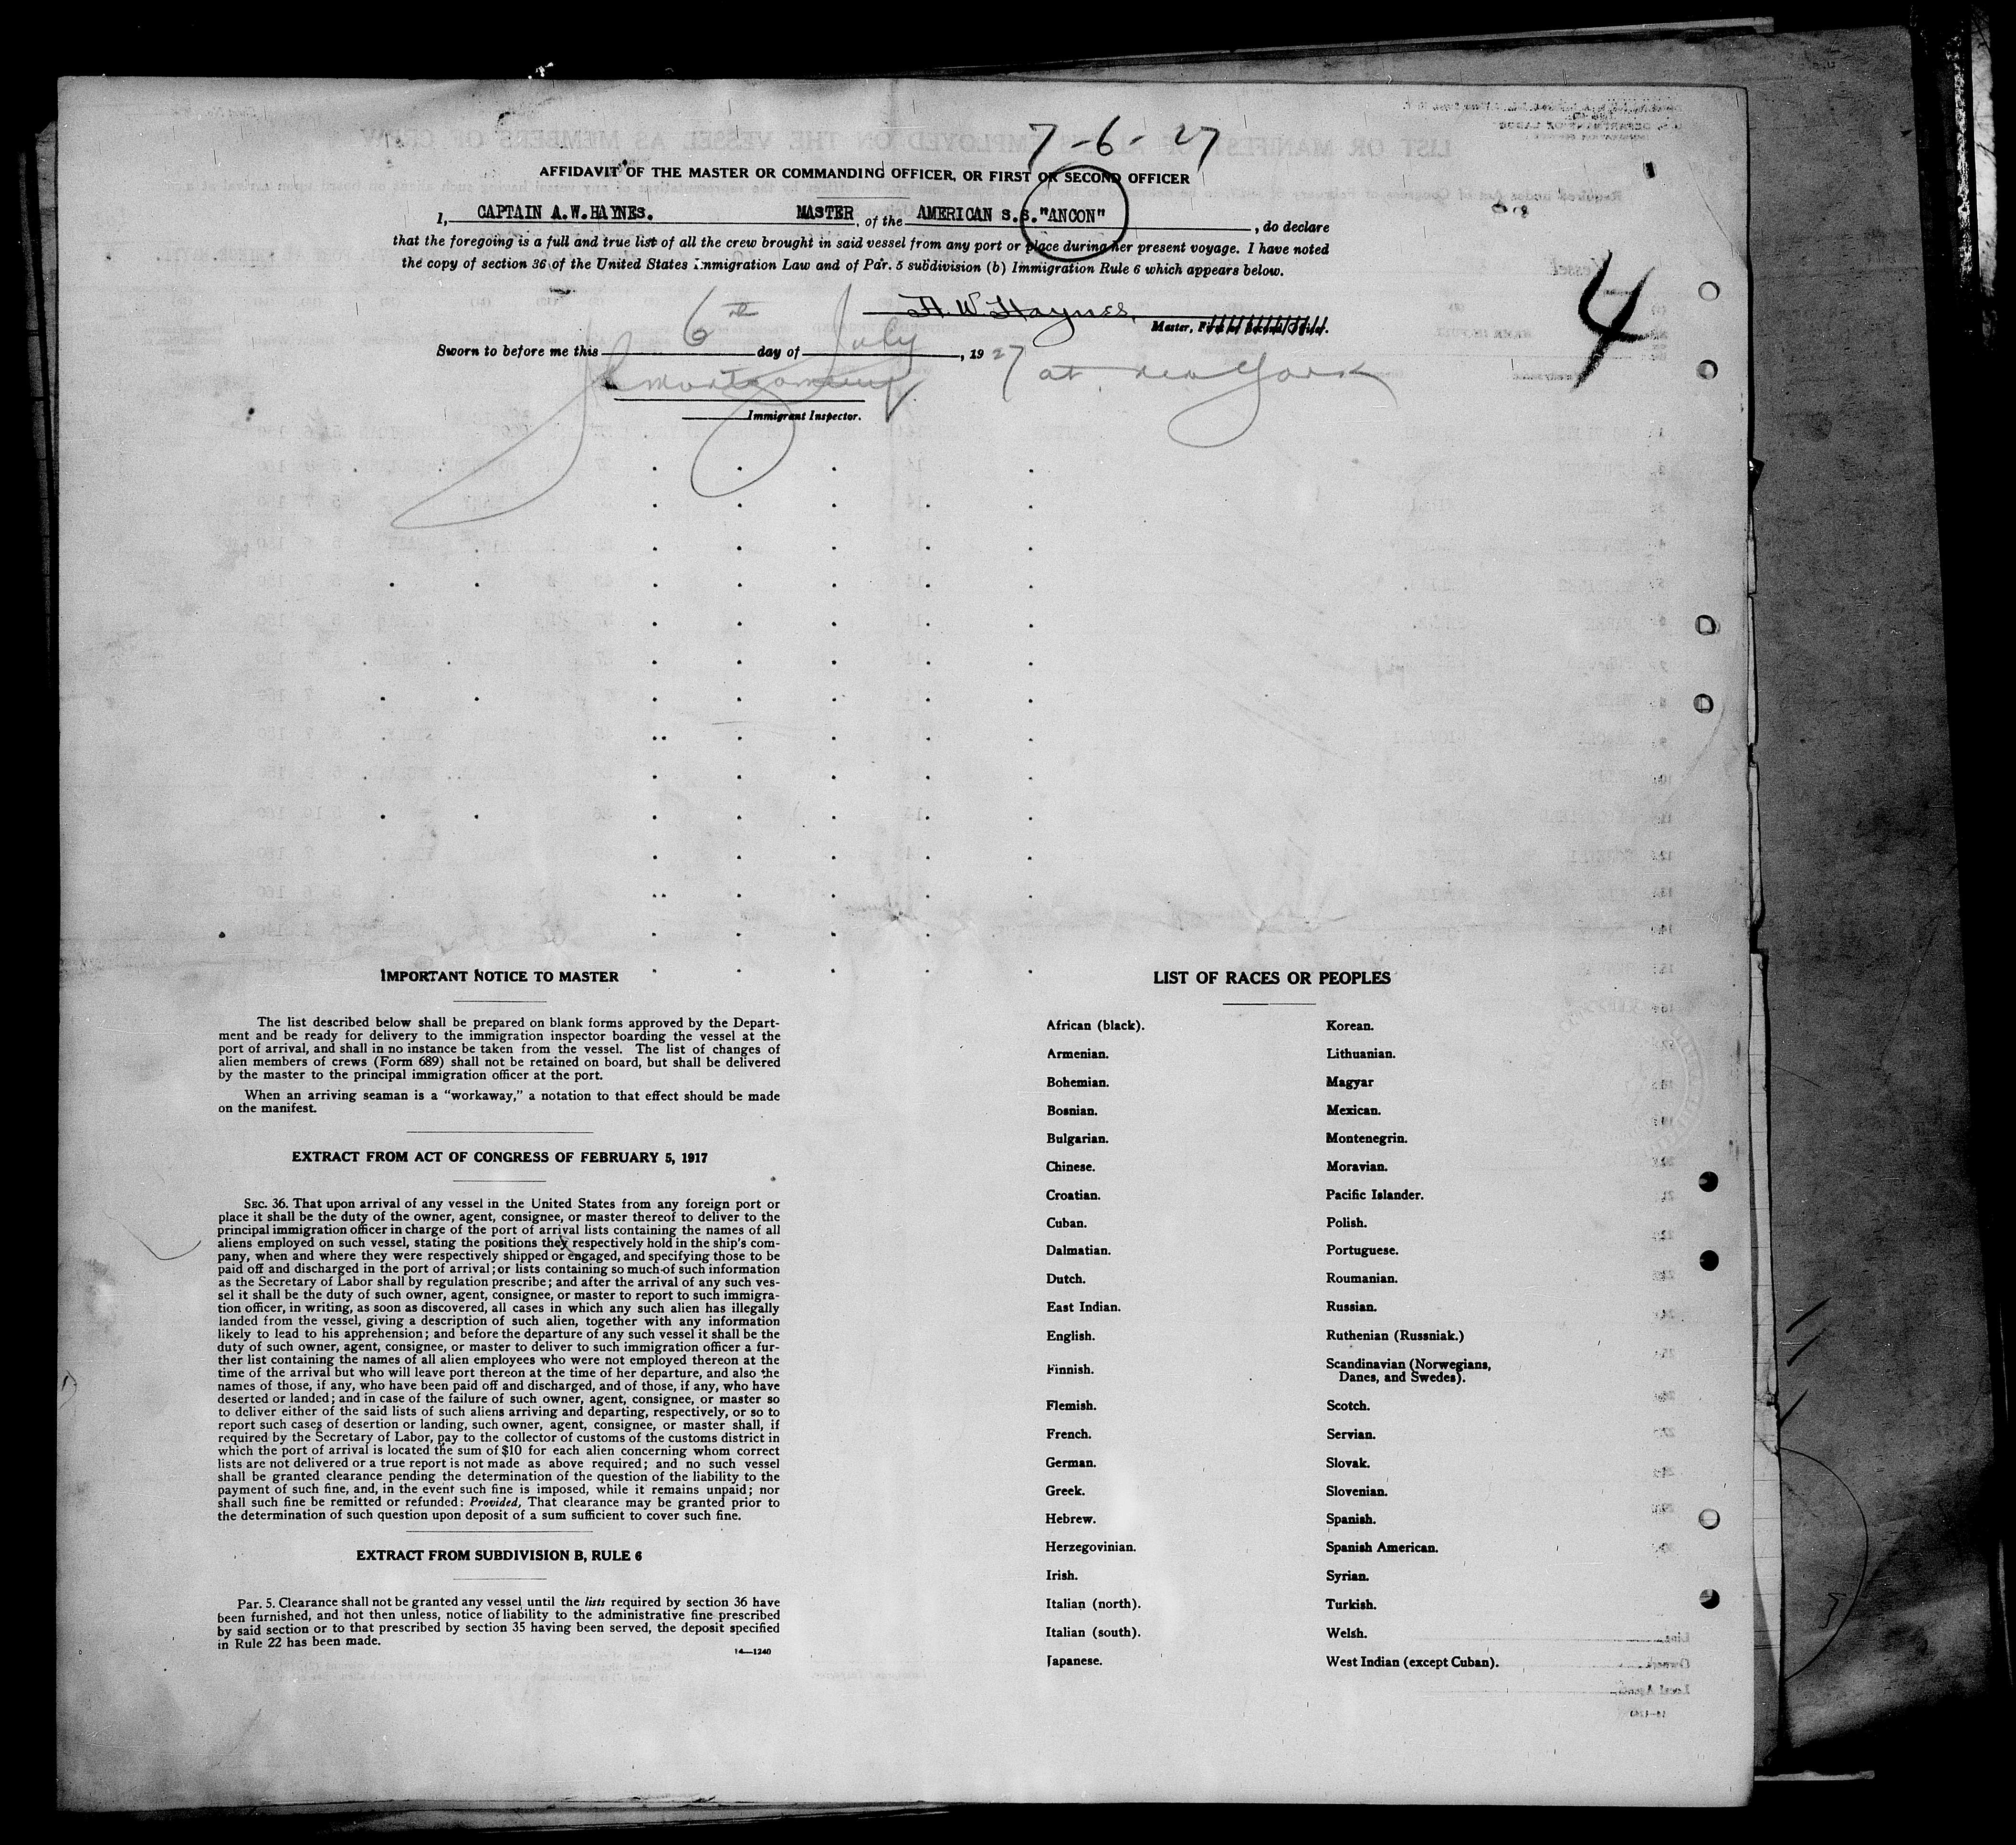 7-6-27
AFFIDAVIT OF THE MASTER OR COMMANDING OFFICER, OR FIRST OR SECOND OFFICER
I, CAPTAIN A.W.HAYNES. MASTER, of the AMERICAN S.S."ANCON", do declare
that the foregoing is a full and true list of all the crew brought in said vessel from any port or place during her present voyage. I have noted
the copy of section 36 of the United States Immigration Law and of Par. 5 subdivision (b) Immigration Rule 6 which appears below.
4
A.W.Haynes.
Master, First or Second Officer.
Sworn to before me this 6th day of July, 1927 at New York
Montgomery
Immigrant Inspector.
IMPORTANT NOTICE TO MASTER
The list described below shall be prepared on blank forms approved by the Depart-
ment and be ready for delivery to the immigration inspector boarding the vessel at the
port of arrival, and shall in no instance be taken from the vessel. The list of changes of
alien members of crews (Form 689) shall not be retained on board, but shall be delivered
by the master to the principal immigration officer at the port.
When an arriving seaman is a "workaway," a notation to that effect should be made
on the manifest.
EXTRACT FROM ACT OF CONGRESS OF FEBRUARY 5, 1917
SEC. 36. That upon arrival of any vessel in the United States from any foreign port or
place it shall be the duty of the owner, agent, consignee, or master thereof to deliver to the
principal immigration officer in charge of the port of arrival lists containing the names of all
aliens employed on such vessel, stating the positions they respectively hold in the ship's com-
pany, when and where they were respectively shipped or engaged, and specifying those to be
paid off and discharged in the port of arrival; or lists containing so much of such information
as the Secretary of Labor shall by regulation prescribe; and after the arrival of any such ves-
sel it shall be the duty of such owner, agent, consignee, or master to report to such immigra-
tion officer, in writing, as soon as discovered, all cases in which any such alien has illegally
landed from the vessel, giving a description of such alien, together with any information
likely to lead to his apprehension; and before the departure of any such vessel it shall be the
duty of such owner, agent, consignee, or master to deliver to such immigration officer a fur-
ther list containing the names of all alien employees who were not employed thereon at the
time of the arrival but who will leave port thereon at the time of her departure, and also the
names of those, if any, who have been paid off and discharged, and of those, if any, who have
deserted or landed; and in case of the failure of such owner, agent, consignee, or master so
to deliver either of the said lists of such aliens arriving and departing, respectively, or so to
report such cases of desertion or landing, such owner, agent, consignee, or master shall, if
required by the Secretary of Labor, pay to the collector of customs of the customs district in
which the port of arrival is located the sum of $10 for each alien concerning whom correct
lists are not delivered or a true report is not made as above required; and no such vessel
shall be granted clearance pending the determination of the question of the liability to the
payment of such fine, and, in the event such fine is imposed, while it remains unpaid; nor
shall such fine be remitted or refunded: Provided, That clearance may be granted prior to
the determination of such question upon deposit of a sum sufficient to cover such fine.
EXTRACT FROM SUBDIVISION B, RULE 6
Par. 5. Clearance shall not be granted any vessel until the lists required by section 36 have
been furnished, and not then unless, notice of liability to the administrative fine prescribed
by said section or to that prescribed by section 35 having been served, the deposit specified
in Rule 22 has been made.
14—1240
LIST OF RACES OR PEOPLES
African (black).
Armenian.
Bohemian.
Bosnian.
Bulgarian.
Chinese.
Croatian.
Cuban.
Dalmatian.
Dutch.
East Indian.
English.
Finnish.
Flemish.
French.
German.
Greek.
Hebrew.
Herzegovinian.
Irish.
Italian (north).
Italian (south).
Japanese.
Korean.
Lithuanian.
Magyar
Mexican.
Montenegrin.
Moravian.
Pacific Islander.
Polish.
Portuguese.
Roumanian.
Russian.
Ruthenian (Russniak.)
Scandinavian (Norwegians,
Danes, and Swedes).
Scotch.
Servian.
Slovak.
Slovenian.
Spanish.
Spanish American.
Syrian.
Turkish.
Welsh.
West Indian (except Cuban).